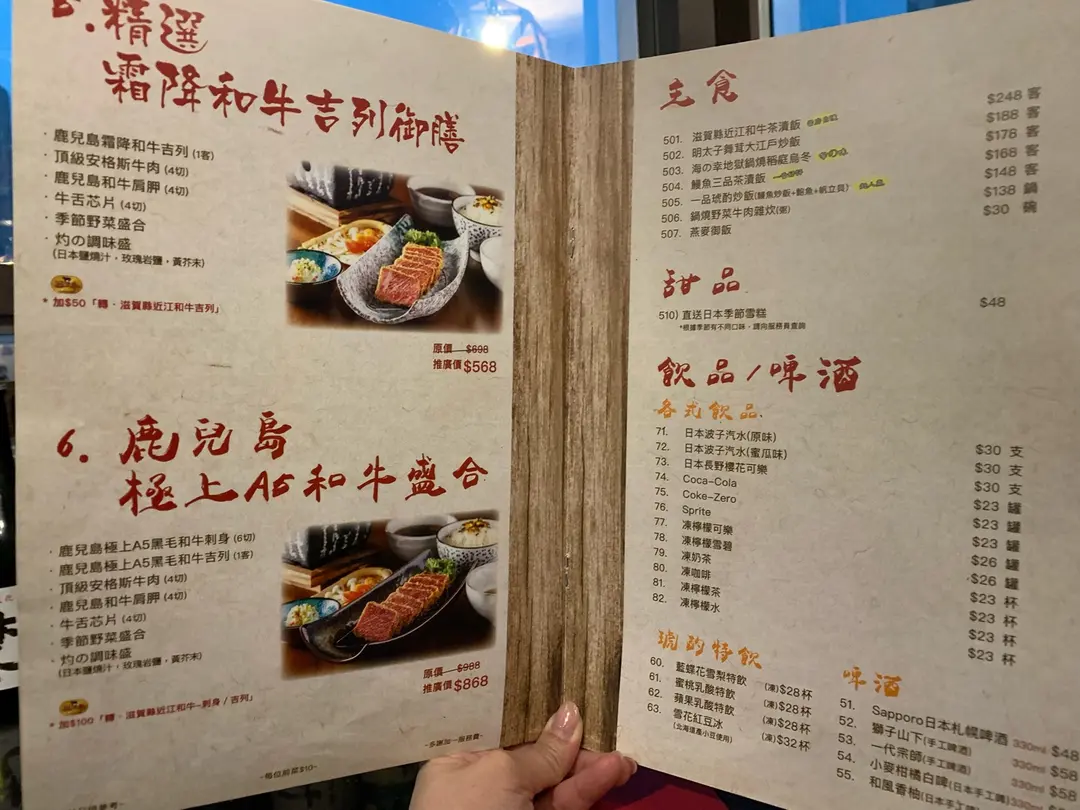 .精選
霜降和牛吉列御膳
· 鹿兒島霜降和牛吉列 (1客)
· 頂級安格斯牛肉 (4切)
· 鹿兒島和牛肩胛 (4切)
· 牛舌芯片 (4切)
· 季節野菜盛合
· 灼の調味盛
(日本鹽燒汁，玫瑰岩鹽，黃芥末)
* 加$50「轉 · 滋賀縣近江和牛吉列」
原價 $698
推廣價 $568
6. 鹿兒島
極上A5和牛盛合
· 鹿兒島極上A5黑毛和牛刺身 (6切)
· 鹿兒島極上A5黑毛和牛吉列 (1客)
· 頂級安格斯牛肉 (4切)
· 鹿兒島和牛肩胛 (4切)
· 牛舌芯片 (4切)
· 季節野菜盛合
· 灼の調味盛
(日本鹽燒汁，玫瑰岩鹽，黃芥末)
* 加$100「轉 · 滋賀縣近江和牛-刺身 / 吉列」
原價 $988
推廣價 $868
~多謝加一服務費~
~每位前菜$10~
主食
501. 滋賀縣近江和牛茶漬飯 $248 客
502. 明太子舞茸大江戶炒飯 $188 客
503. 海の幸地獄鍋燒稻庭烏冬 $178 客
504. 鰻魚三品茶漬飯 $168 客
505. 一品琥酌炒飯(鰻魚炒飯+鮑魚+帆立貝) $148 客
506. 鍋燒野菜牛肉雜炊(粥) $138 鍋
507. 燕麥御飯 $30 碗
甜品
510) 直送日本季節雪糕 $48
*根據季節有不同口味，請向服務員查詢
飲品/啤酒
各式飲品
71. 日本波子汽水(原味) $30 支
72. 日本波子汽水(蜜瓜味) $30 支
73. 日本長野櫻花可樂 $30 支
74. Coca-Cola $23 罐
75. Coke-Zero $23 罐
76. Sprite $23 罐
77. 凍檸檬可樂 $26 罐
78. 凍檸檬雪碧 $26 罐
79. 凍奶茶 $23 杯
80. 凍咖啡 $23 杯
81. 凍檸檬茶 $23 杯
82. 凍檸檬水 $23 杯
琥酌特飲
60. 藍蝶花雪梨特飲 (凍)$28杯
61. 蜜桃乳酸特飲 (凍)$28杯
62. 蘋果乳酸特飲 (凍)$28杯
63. 雪花紅豆冰 (凍)$32杯
(北海道產小豆使用)
啤酒
51. Sapporo日本札幌啤酒 330ml $48
52. 獅子山下(手工啤酒) 330ml $58
53. 一代宗師(手工啤酒) 330ml $58
54. 小麥柑橘白啤(日本手工啤
55. 和風香柚(日本手工